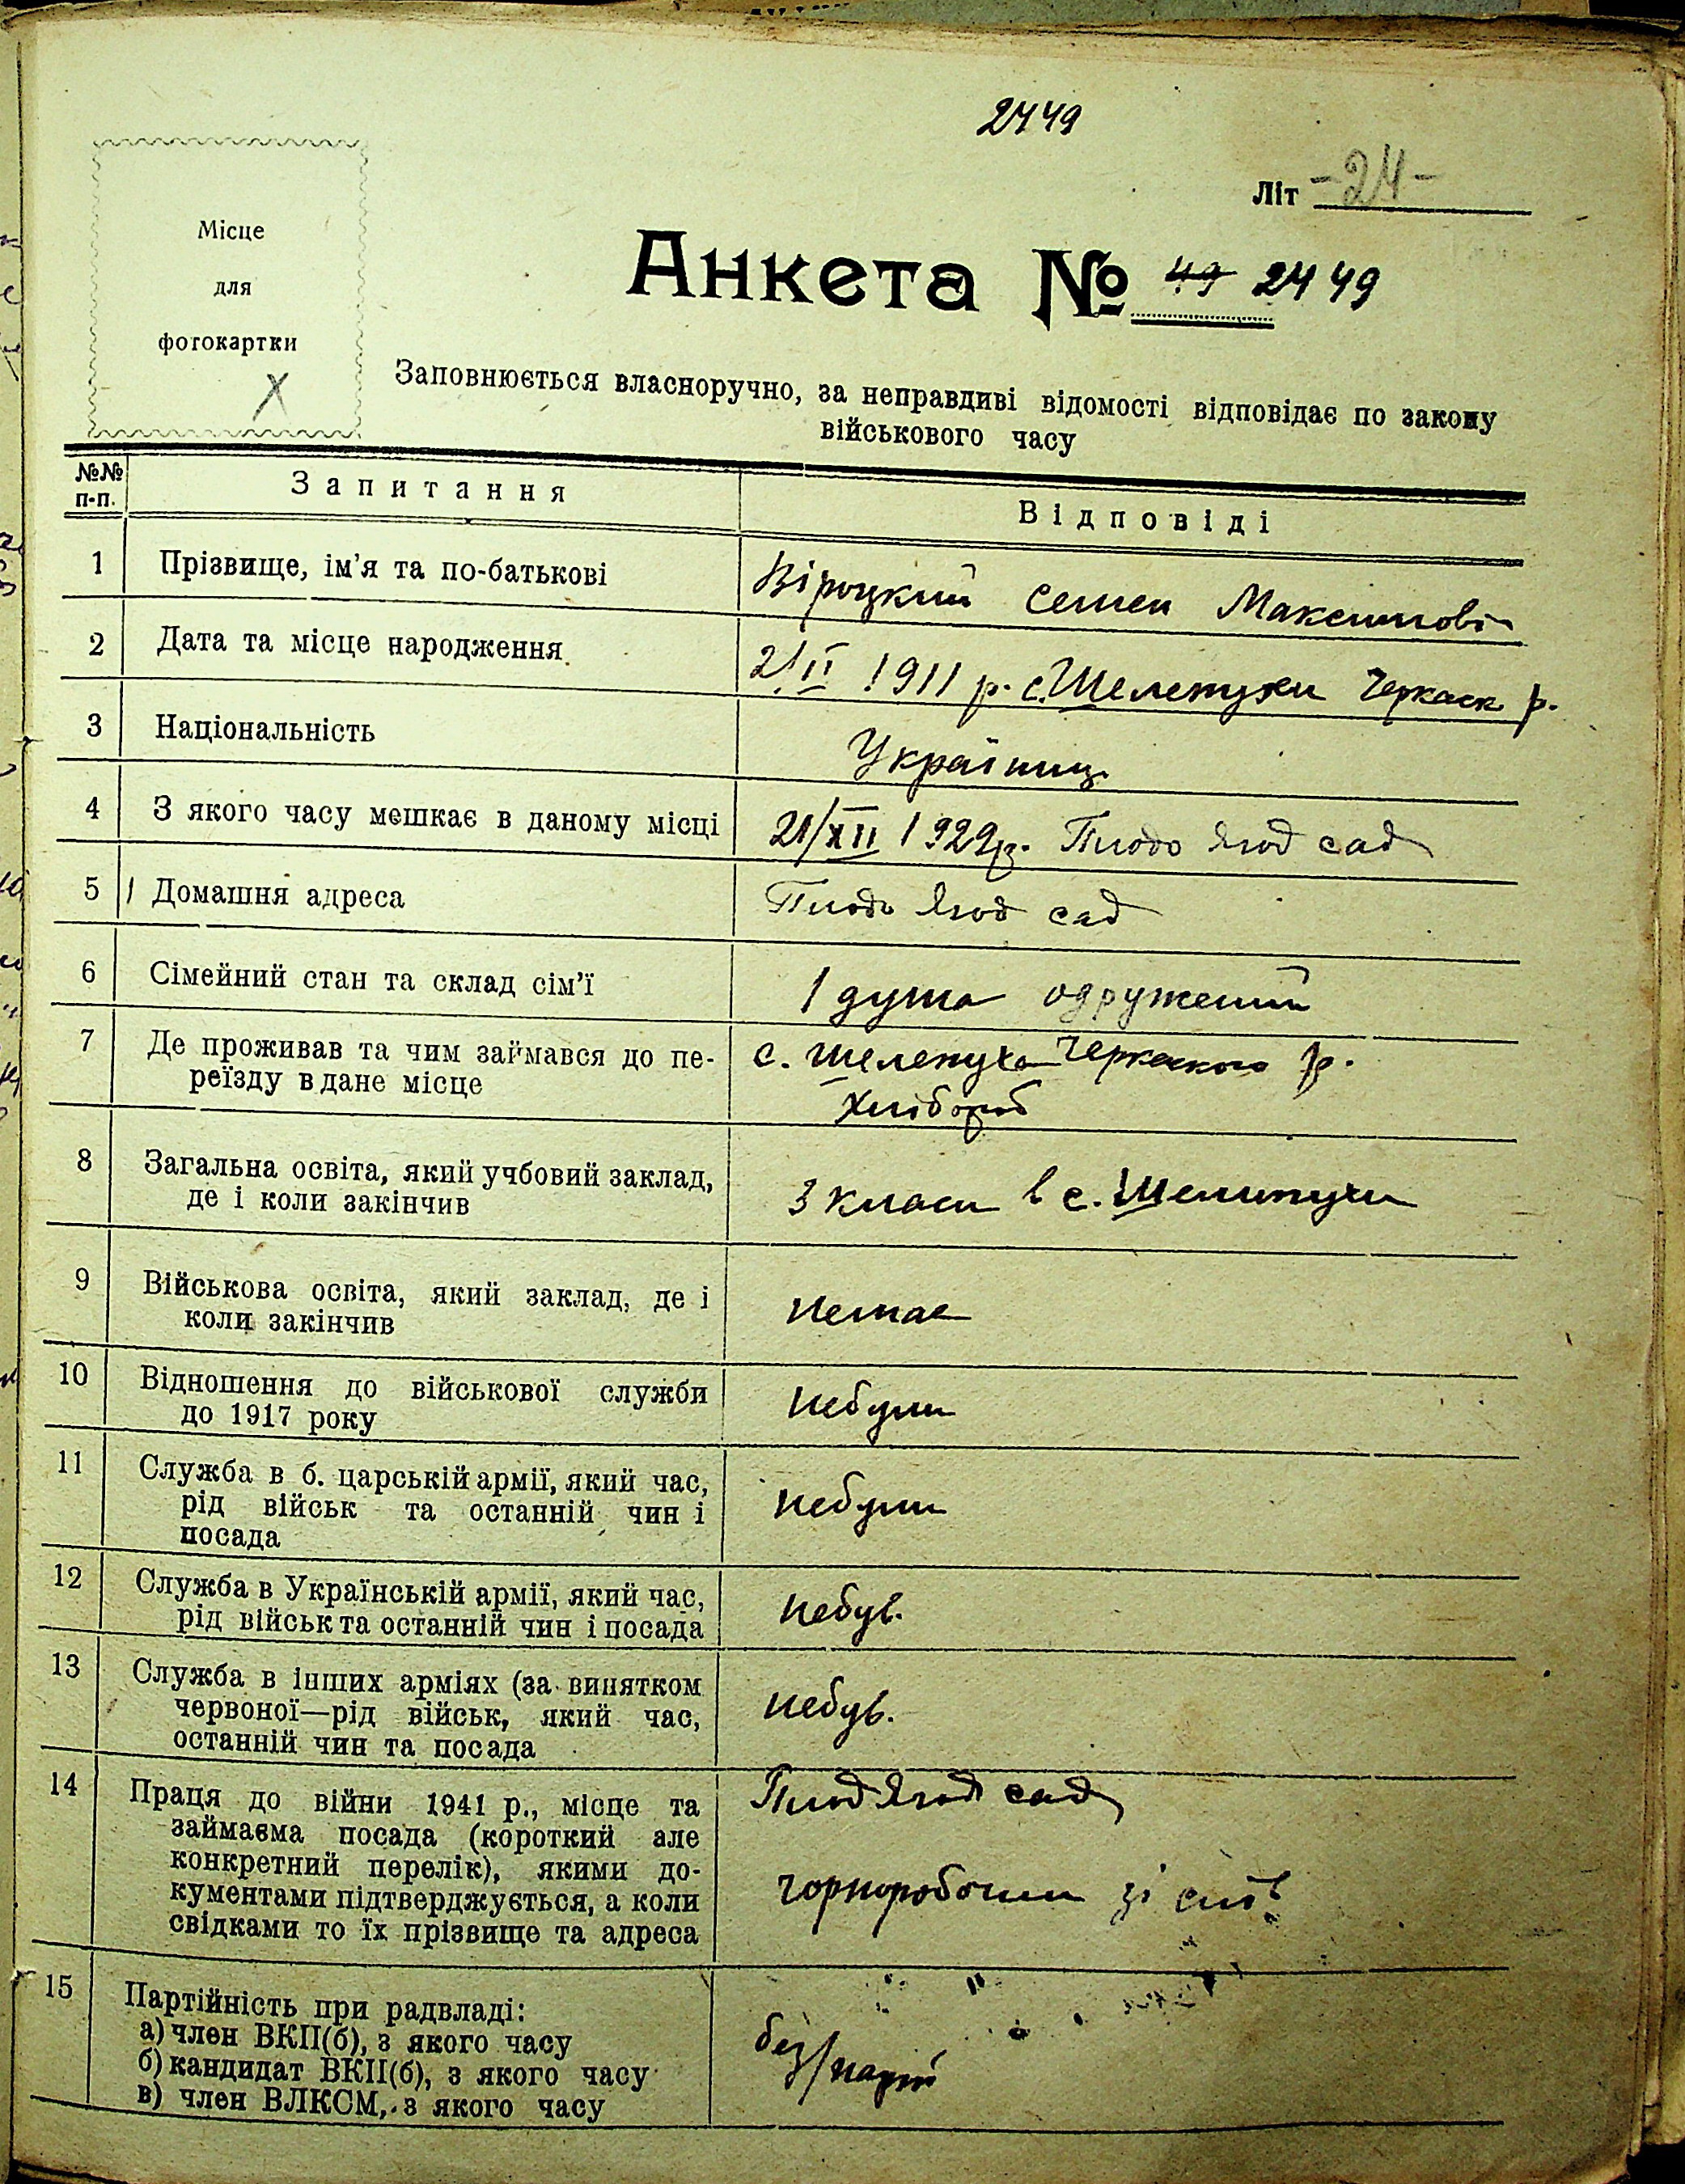 2449
Літ -24-
Місце
для
фотокартки
Х
Анкета № 49 2449
Заповнюється власноручно, за неправдиві відомості відповідає по закону
військового часу
№№ п-п. Запитання Відповіді
1 Прізвище, ім'я та по-батькові Віроцкий Семен Максимові
2 Дата та місце народження 2/II 1911 р. с. Шелепухи Черкаск р.
3 Національність Українць
4 З якого часу мешкає в даному місці 21/XII 1929р. Плодо Ягод сад
5 Домашня адреса Плодо Ягод сад
6 Сімейний стан та склад сім'ї 1 душа одружений
7 Де проживав та чим займався до пе- с. Шелепуха Черкаского р.
реїзду в дане місце Хлібороб
8 Загальна освіта, який учбовий заклад,
де і коли закінчив 3 класи в с. Шелипухи
9 Військова освіта, який заклад, де і
коли закінчив немає
10 Відношення до військової служби
до 1917 року небули
11 Служба в б. царській армії, який час,
рід військ та останній чин і небули
посада
12 Служба в Українській армії, який час,
рід військ та останній чин і посада небув.
13 Служба в інших арміях (за винятком
червоної—рід військ, який час, небув.
останній чин та посада
14 Праця до війни 1941 р., місце та Плод Ягод сад
займаєма посада (короткий але
конкретний перелік), якими до-
кументами підтверджується, а коли чорноробочи
свідками то їх прізвище та адреса
15 Партійність при радвладі:
а) член ВКП(б), з якого часу
б) кандидат ВКП(б), з якого часу без/парт
в) член ВЛКСМ, з якого часу